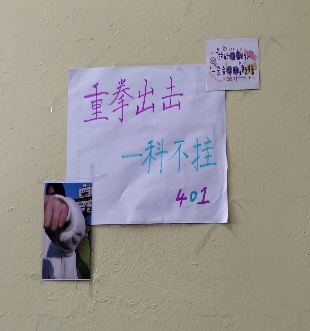 重拳出击
一科不挂
401